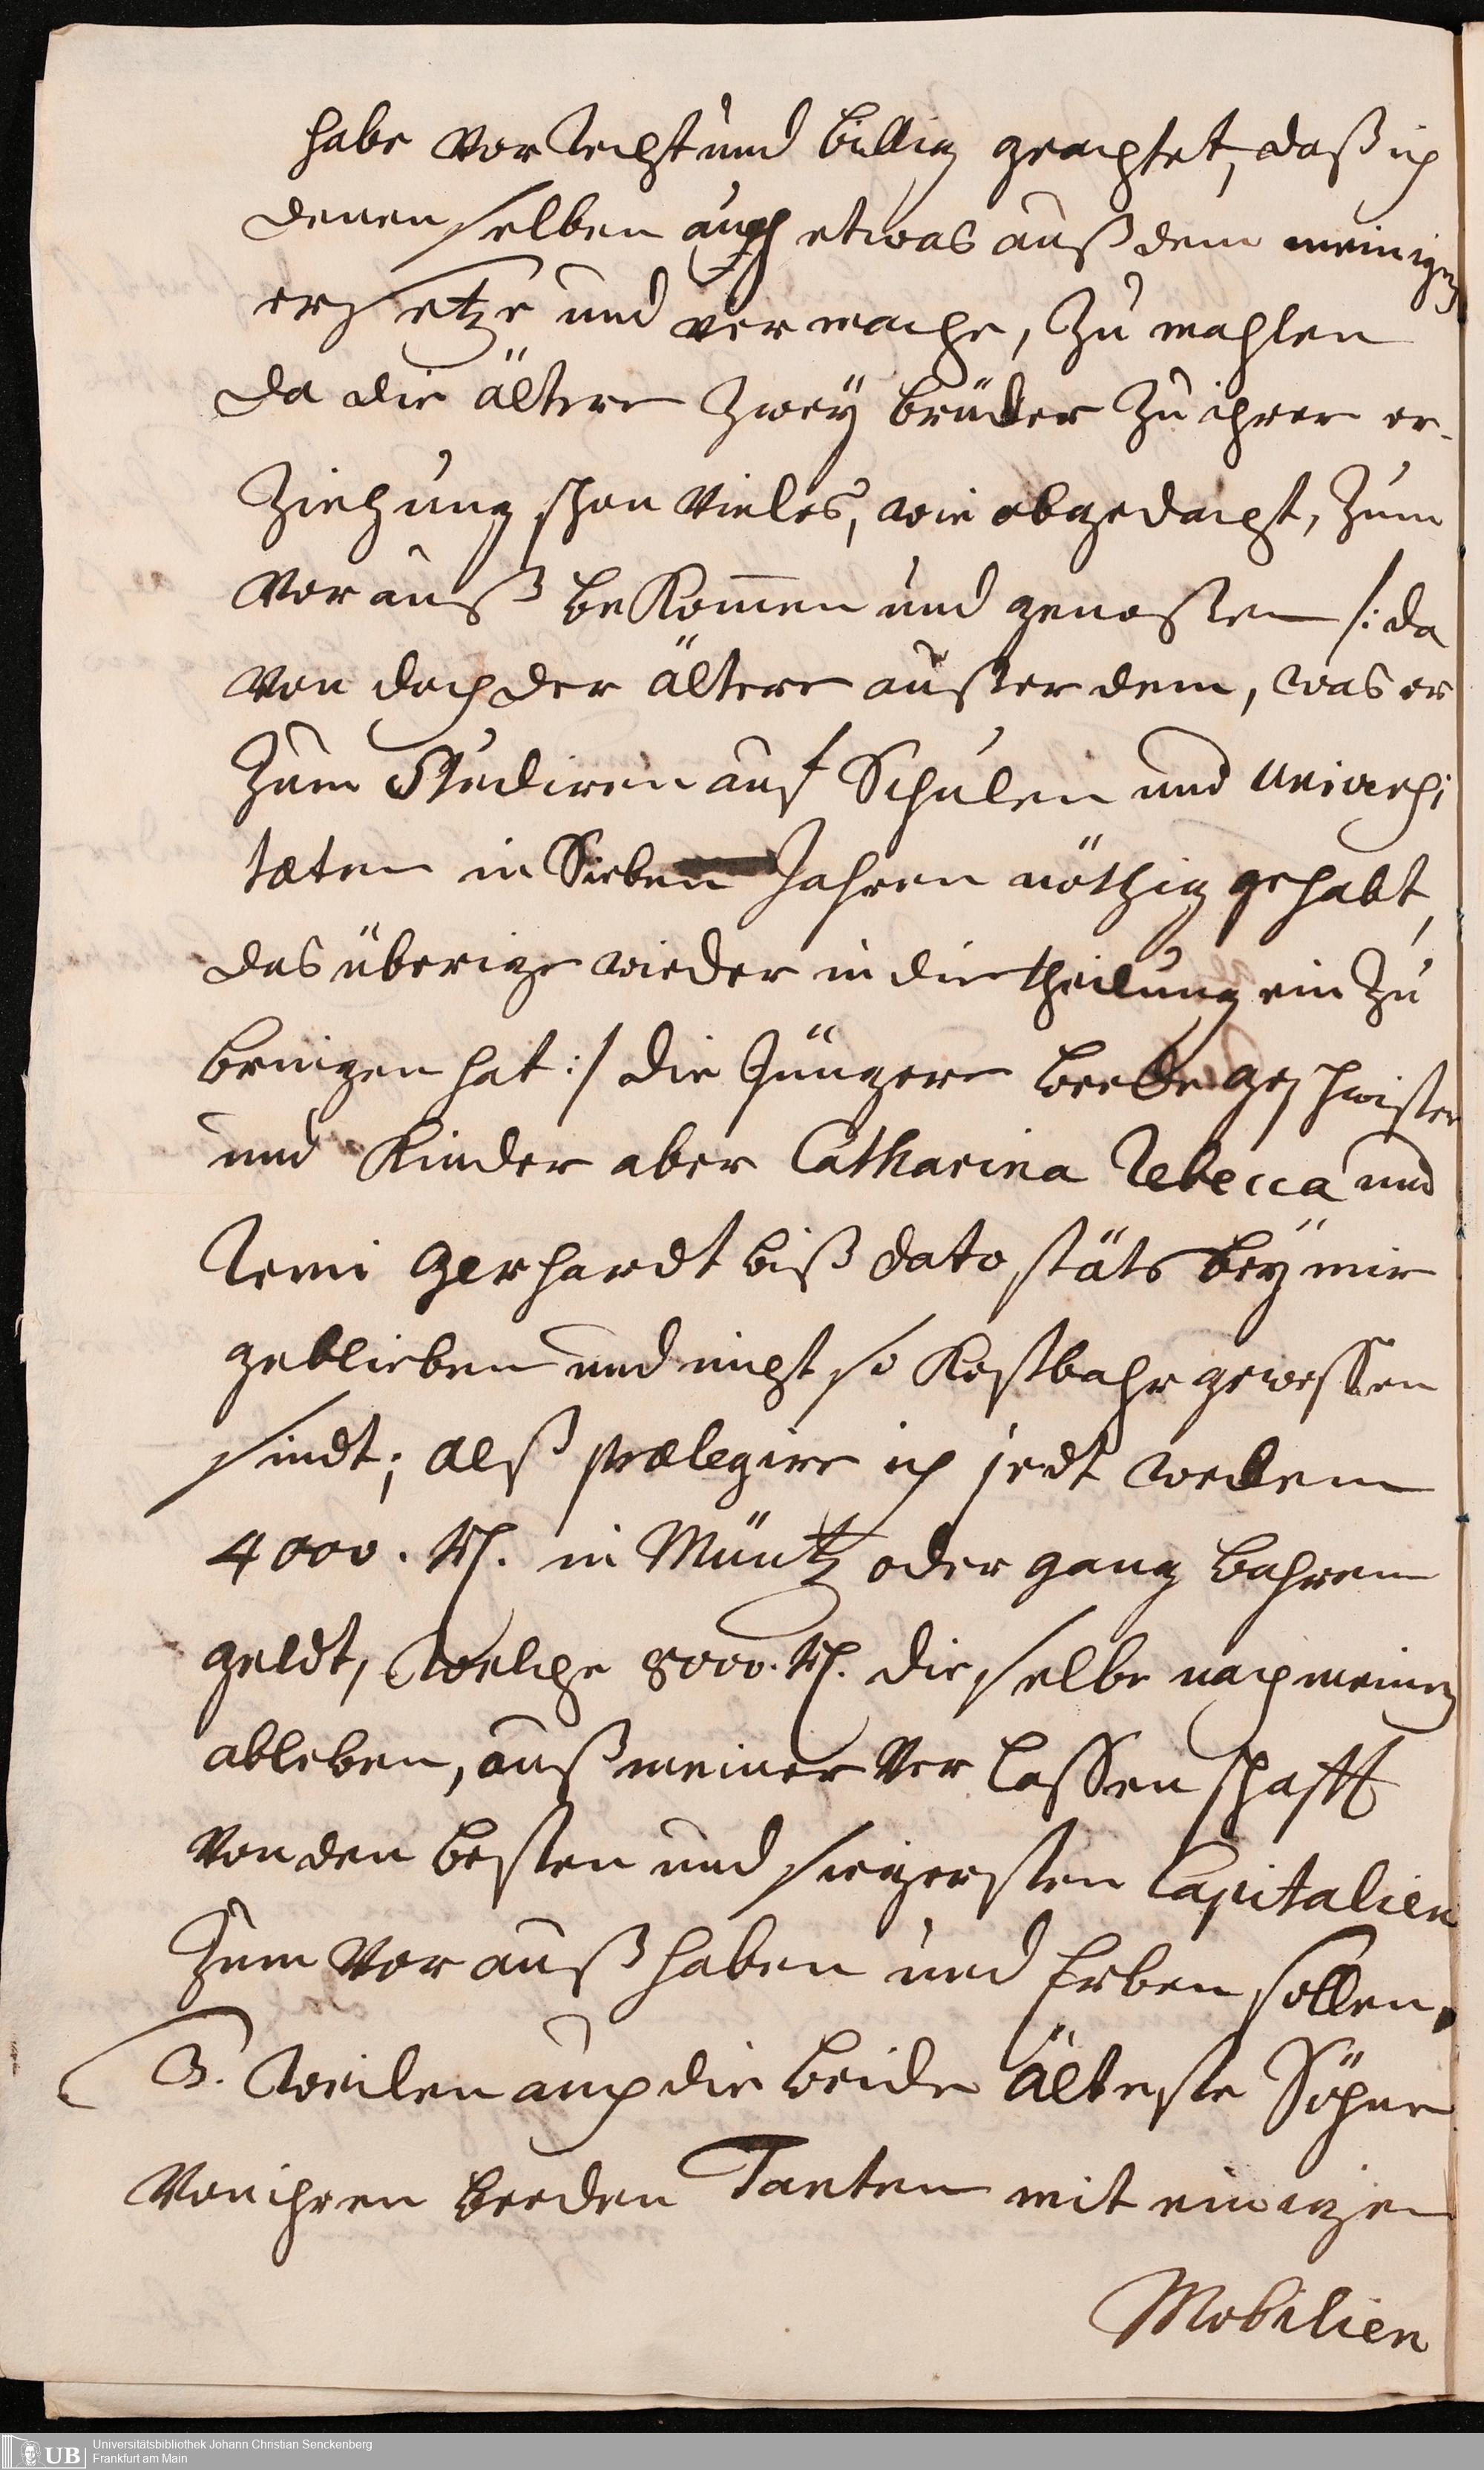 habe vor Recht und billig geachtet, daß ich
denenselben auch etwas auß dem meinigen
ersetze und vermache, Zumahlen
da die ältere Zwey brüder Zu ihrer er-
Ziehung schon vieles, wie obgedacht, Zum
vorauß bekom̄en und genossen /: da
von doch der ältere ausser dem, was er
Zum Studiren auf Schulen und Universi
tæten in Sieben Jahren nöthig gehabt,
das überige wieder in die theilung ein Zu
bringen hat :/ die Jüngere beede geschwister
und Kinder aber Catharina Rebecca und
Remi Gerhardt biß dato stäts bey mir
geblieben und nicht so Kostbahr gewessen
sindt; alß prælegire ich jedt wedem
4000. Rl. in Müntz oder gang bahrem
geldt, Welche 8000. Rl. dieselbe nach meinem
ableben, auß meiner verlassenschafft
von den besten und sichersten Capitalien
Zum vorauß haben und Erben sollen.
3. Weilen auch die beide älteste Söhne
von ihren beeden Tanten mit einigen
Mobilien
Universitätsbibliothek Johann Christian Senckenberg
Frankfurt am Main
UB